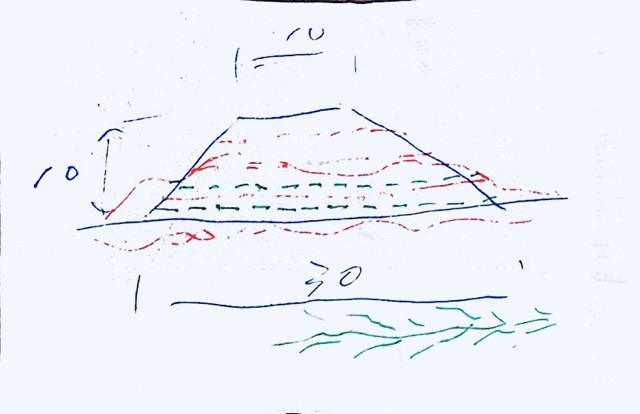 10
10
30